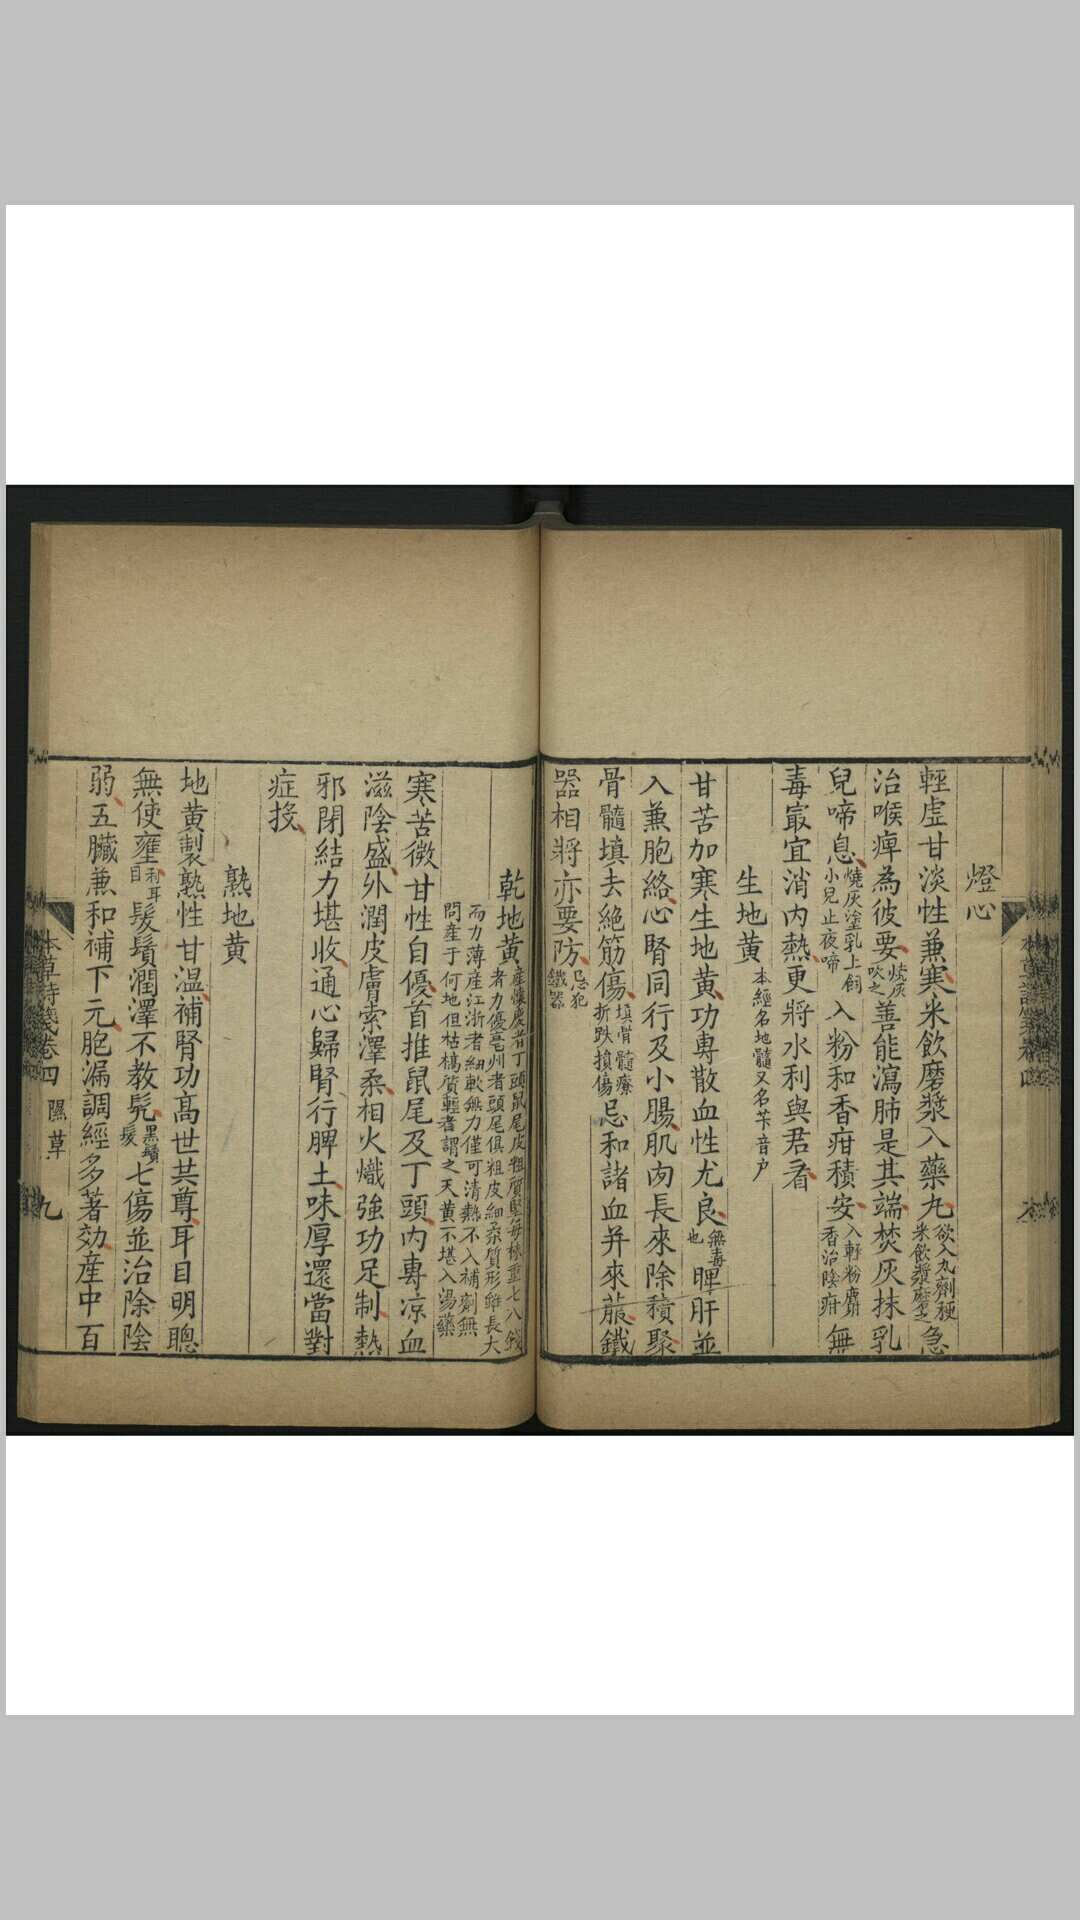 燈心
輕虛甘淡性兼寒米飲磨漿入藥丸欲入丸劑粳米飲漿磨之急
治喉痺為彼要燒灰吹之善能瀉肺是其端焚灰抹乳
兒啼息燒灰塗乳上飼小兒止夜啼入粉和香疳積安入輕粉麝香治陰疳無
毒最宜消內熱更將水利與君看
生地黃本經名地髓又名芐音戶
甘苦加寒生地黃功專散血性尤良無毒也脾肝並
入兼胞絡心腎同行及小腸肌肉長來除積聚
骨髓填去絕筋傷填骨髓療折跌損傷忌和諸血并來菔鐵
器相將亦要防忌犯鐵器
乾地黃產懷慶者丁頭鼠尾皮粗質堅每株重七八錢者力優亳州者頭尾俱粗皮細柔質形雖長大
而力薄產江浙者細軟無力僅可清熱不入補劑無問產于何地但枯槁質輕者謂之天黃不堪入湯藥
寒苦微甘性自優首推鼠尾及丁頭內專涼血
滋陰盛外潤皮膚索澤柔相火熾強功足制熱
邪閉結力堪收通心歸腎行脾土味厚還當對
症投
熟地黃
地黃製熟性甘溫補腎功高世共尊耳目明聰
無使壅利耳目髮鬚潤澤不教髡黑鬚髮七傷並治除陰
弱五臟兼和補下元胞漏調經多著効產中百
本草詩箋卷四 隰草 九